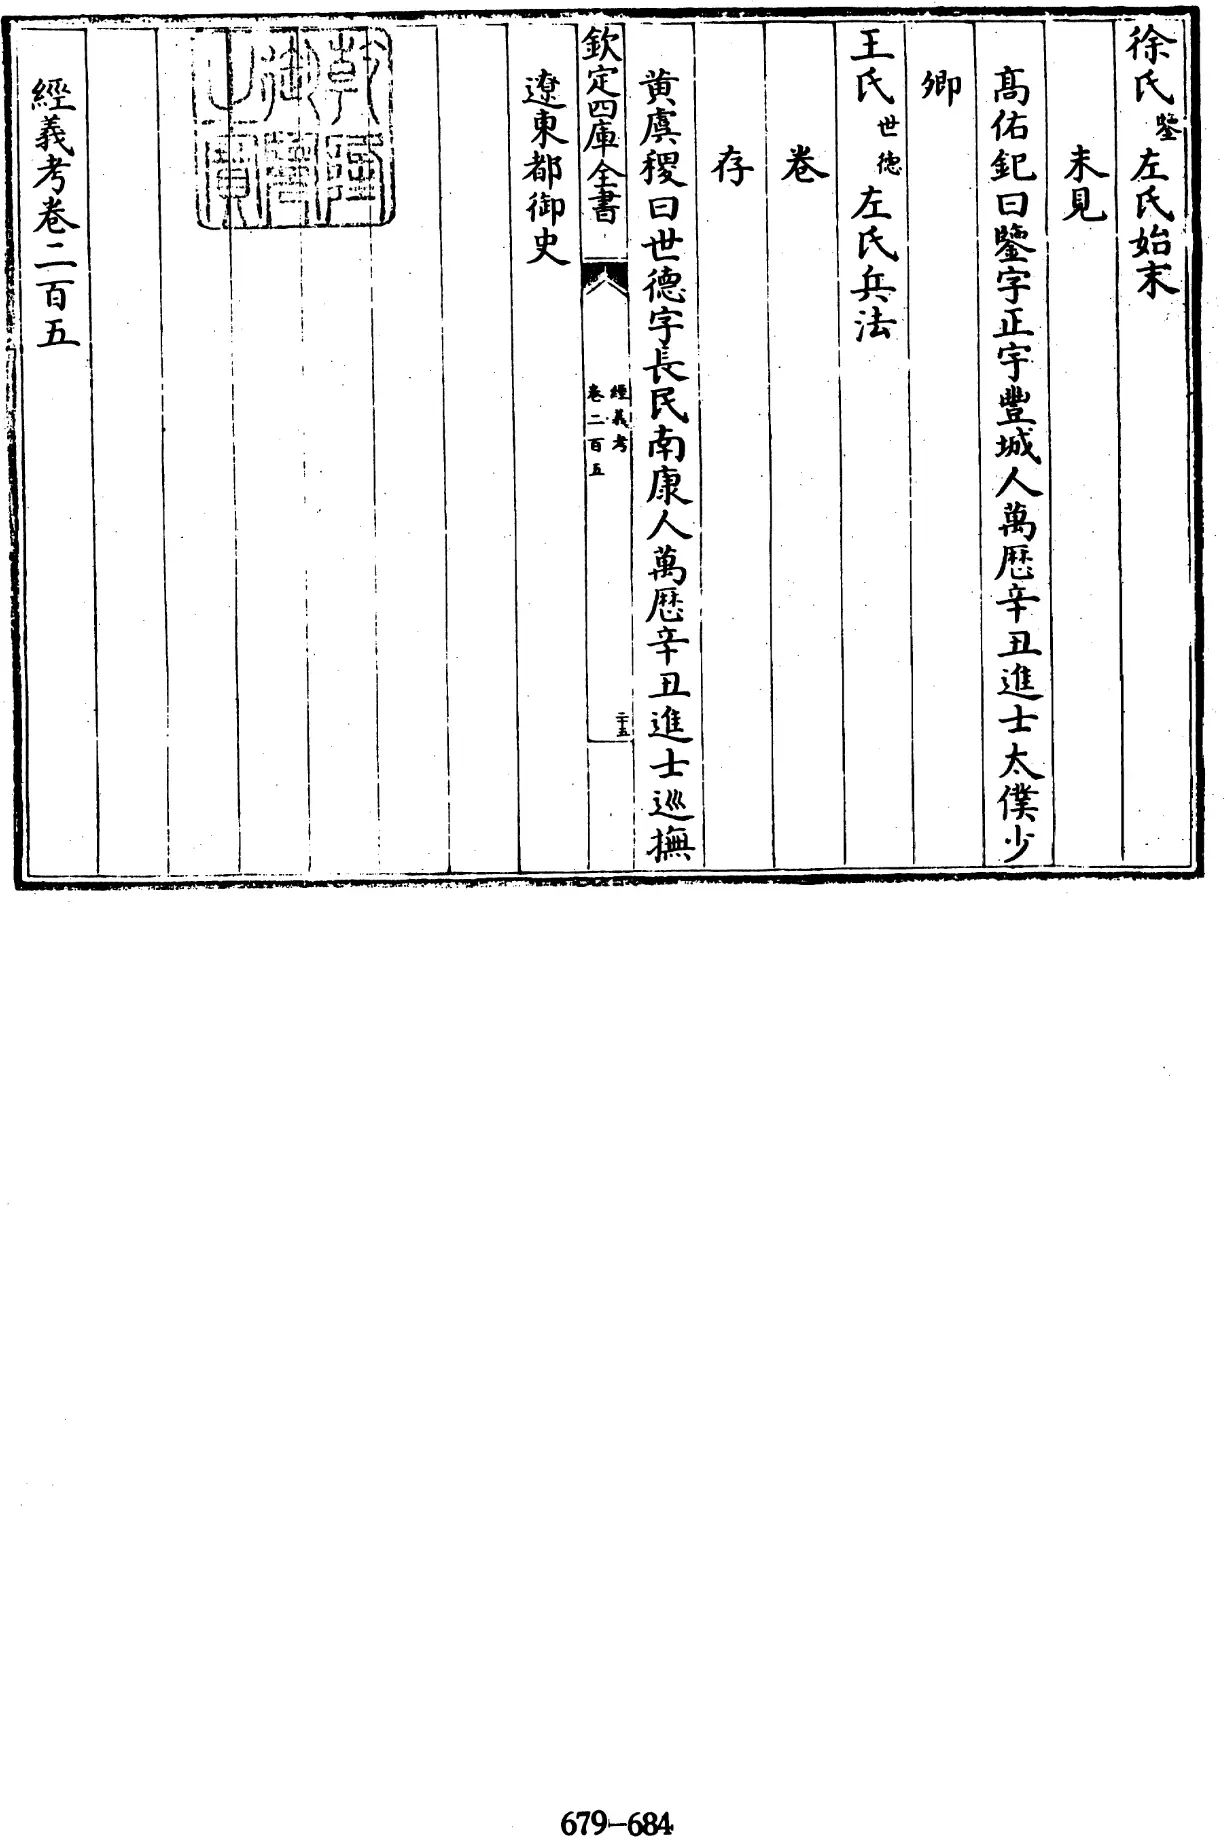 徐氏鑒左氏始末
未見
髙佑釲曰鑒字正宇豐城人萬厯辛丑進士太僕少
卿
王氏世德左氏兵法
卷
存
黄虞稷曰世德字長民南康人萬厯辛丑進士巡撫
欽定四庫全書
經義考
卷二百五
二十五
遼東都御史
乾隆
御覽
之寶
經義考卷二百五
679-684